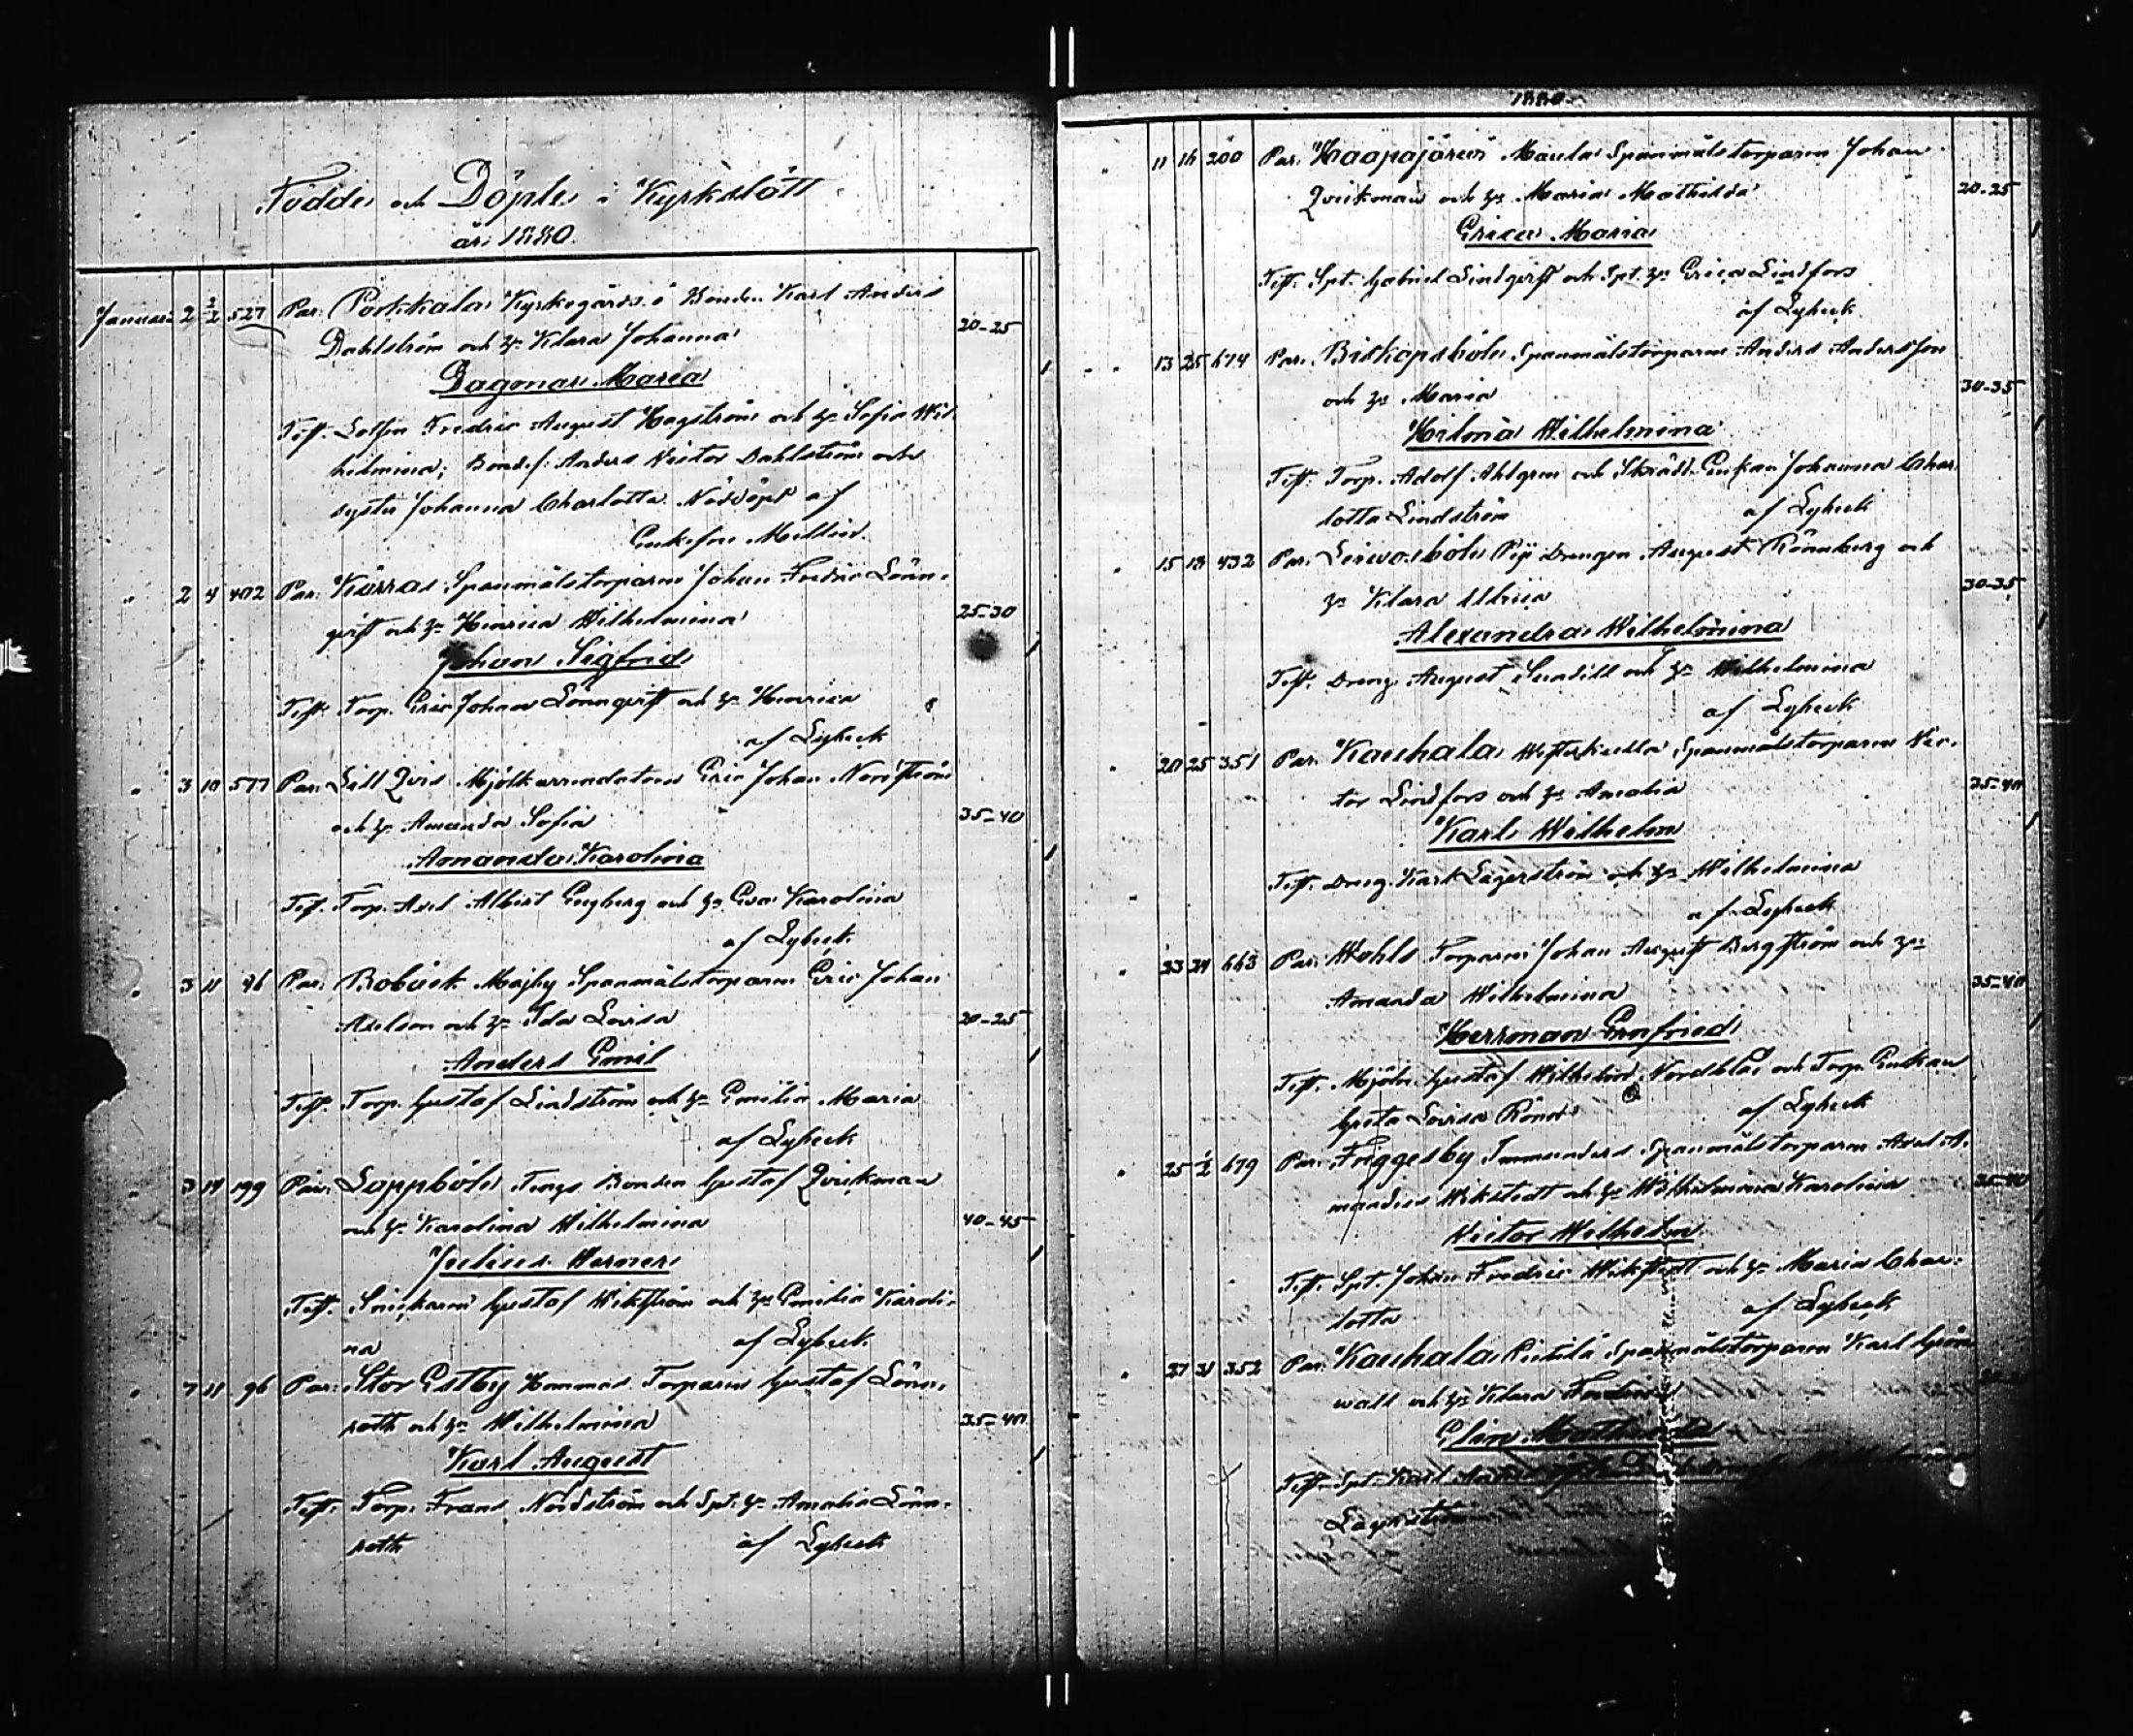 Födde och Döpte i Kyrkslätt
år 1880.
Januari 2 2/2 527 Par. Porkkala Kyrkogårds ö Bonden Karl Anders
Dahlström och h. Klara Johanna 20-25
Dagmar Maria
Test. Lotsen Fredric August Hagström och h. Sofia Wil-
helmina; Bondes. Anders Victor Dahlström och
syster Johanna Charlotta. Nöddöpt af
Enkefru Mellin.
" 2 4 402 Par. Kärras Spanmålstorparen Johan Fredric Lönn-
qvist och h. Henrica Wilhelmina 25-30
Johan Sigfrid
Test. Torp. Eric Johan Lönnqvist och h. Henrica
af Lybeck
" 3 10 577 Par. Lill Qvis Mjölkarrendatorn Eric Johan Norrström
och h. Amanda Sofia 35-40
Amanda Karolina
Test. Torp. Axel Albert Engberg och h. Eva Karolina
af Lybeck
" 3 11 46 Par. Bobäck Majby Spanmålstorparen Eric Johan
Axelson och h. Ida Lovisa 20-25
Anders Emil
Test. Torp. Gustaf Lindström och h. Emilia Maria
af Lybeck
" 3 14 199 Par. Lappböle Tings Bonden Gustaf Qvickman
och h. Karolina Wilhelmina 40-45
Julius Werner
Test. Snickaren Gustaf Wikström och h. Emilia Karoli-
na af Lybeck
" 7 11 96 Par. Stor Estby Hommas Torparen Gustaf Lönn-
roth och h. Wilhelmina 35-40
Karl August
Test. Torp. Frans Nordström och Spt. h. Amalia Lönn-
roth af Lybeck
1880.
" 11 16 200 Par. Haapajärvi Maula Spanmålstorparen Johan
Qvickman och h. Maria Mathilda 20-25
Erica Maria
Test. Spt. Gabriel Lindqvist och Spt. h. Erica Lindfors
af Lybeck
" 13 25 674 Par. Biskopsböle Spanmålstorparen Anders Andersson
och h. Maria 30-35
Hilma Wilhelmina
Test. Torp. Adolf Ahlgren och Skrädd. Enkan Johanna Char-
lotta Lindström af Lybeck
" 15 18 432 Par. Leivosböle Pijı Drengen August Rönnberg och
h. Klara Ulrica 30-35
Alexandra Wilhelmina
Test. Dreng August Sundell och h. Wilhelmina
af Lybeck
" 20 25 351 Par. Kauhala Westerkulla Spanmålstorparen Vic-
tor Lindfors och h. Amalia 35-40
Karl Wilhelm
Test. Dreng. Karl Lagerström och h. Wilhelmina
af Lybeck
" 23 24 663 Par. Wohls Torparen Johan August Bergström och h.
Amanda Wilhelmina 35-40
Herrman Ernfried
Test. Mjöln. Gustaf Wilhelm Nordblad och Torp. Enkan
Greta Lovisa Rönn af Lybeck
" 25 1/2 679 Par. Friggesby Immenders Spanmålstorparen Axel A-
mandus Wikstedt och h. Wilhelmina Karolina 35-40
Victor Wilhelm
Test. Spt. Johan Fredric Wikstedt och h. Maria Char-
lotta af Lybeck
" 27 31 352 Par. Kauhala Pietilä Spanmålstorparen Karl Grön-
wall och h. Klara
Elin Mathilda
Test. Spt. Karl
Lagerström